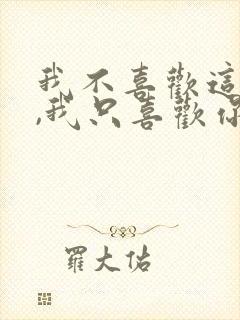 我不喜歡這
,我只喜歡你
羅大佑